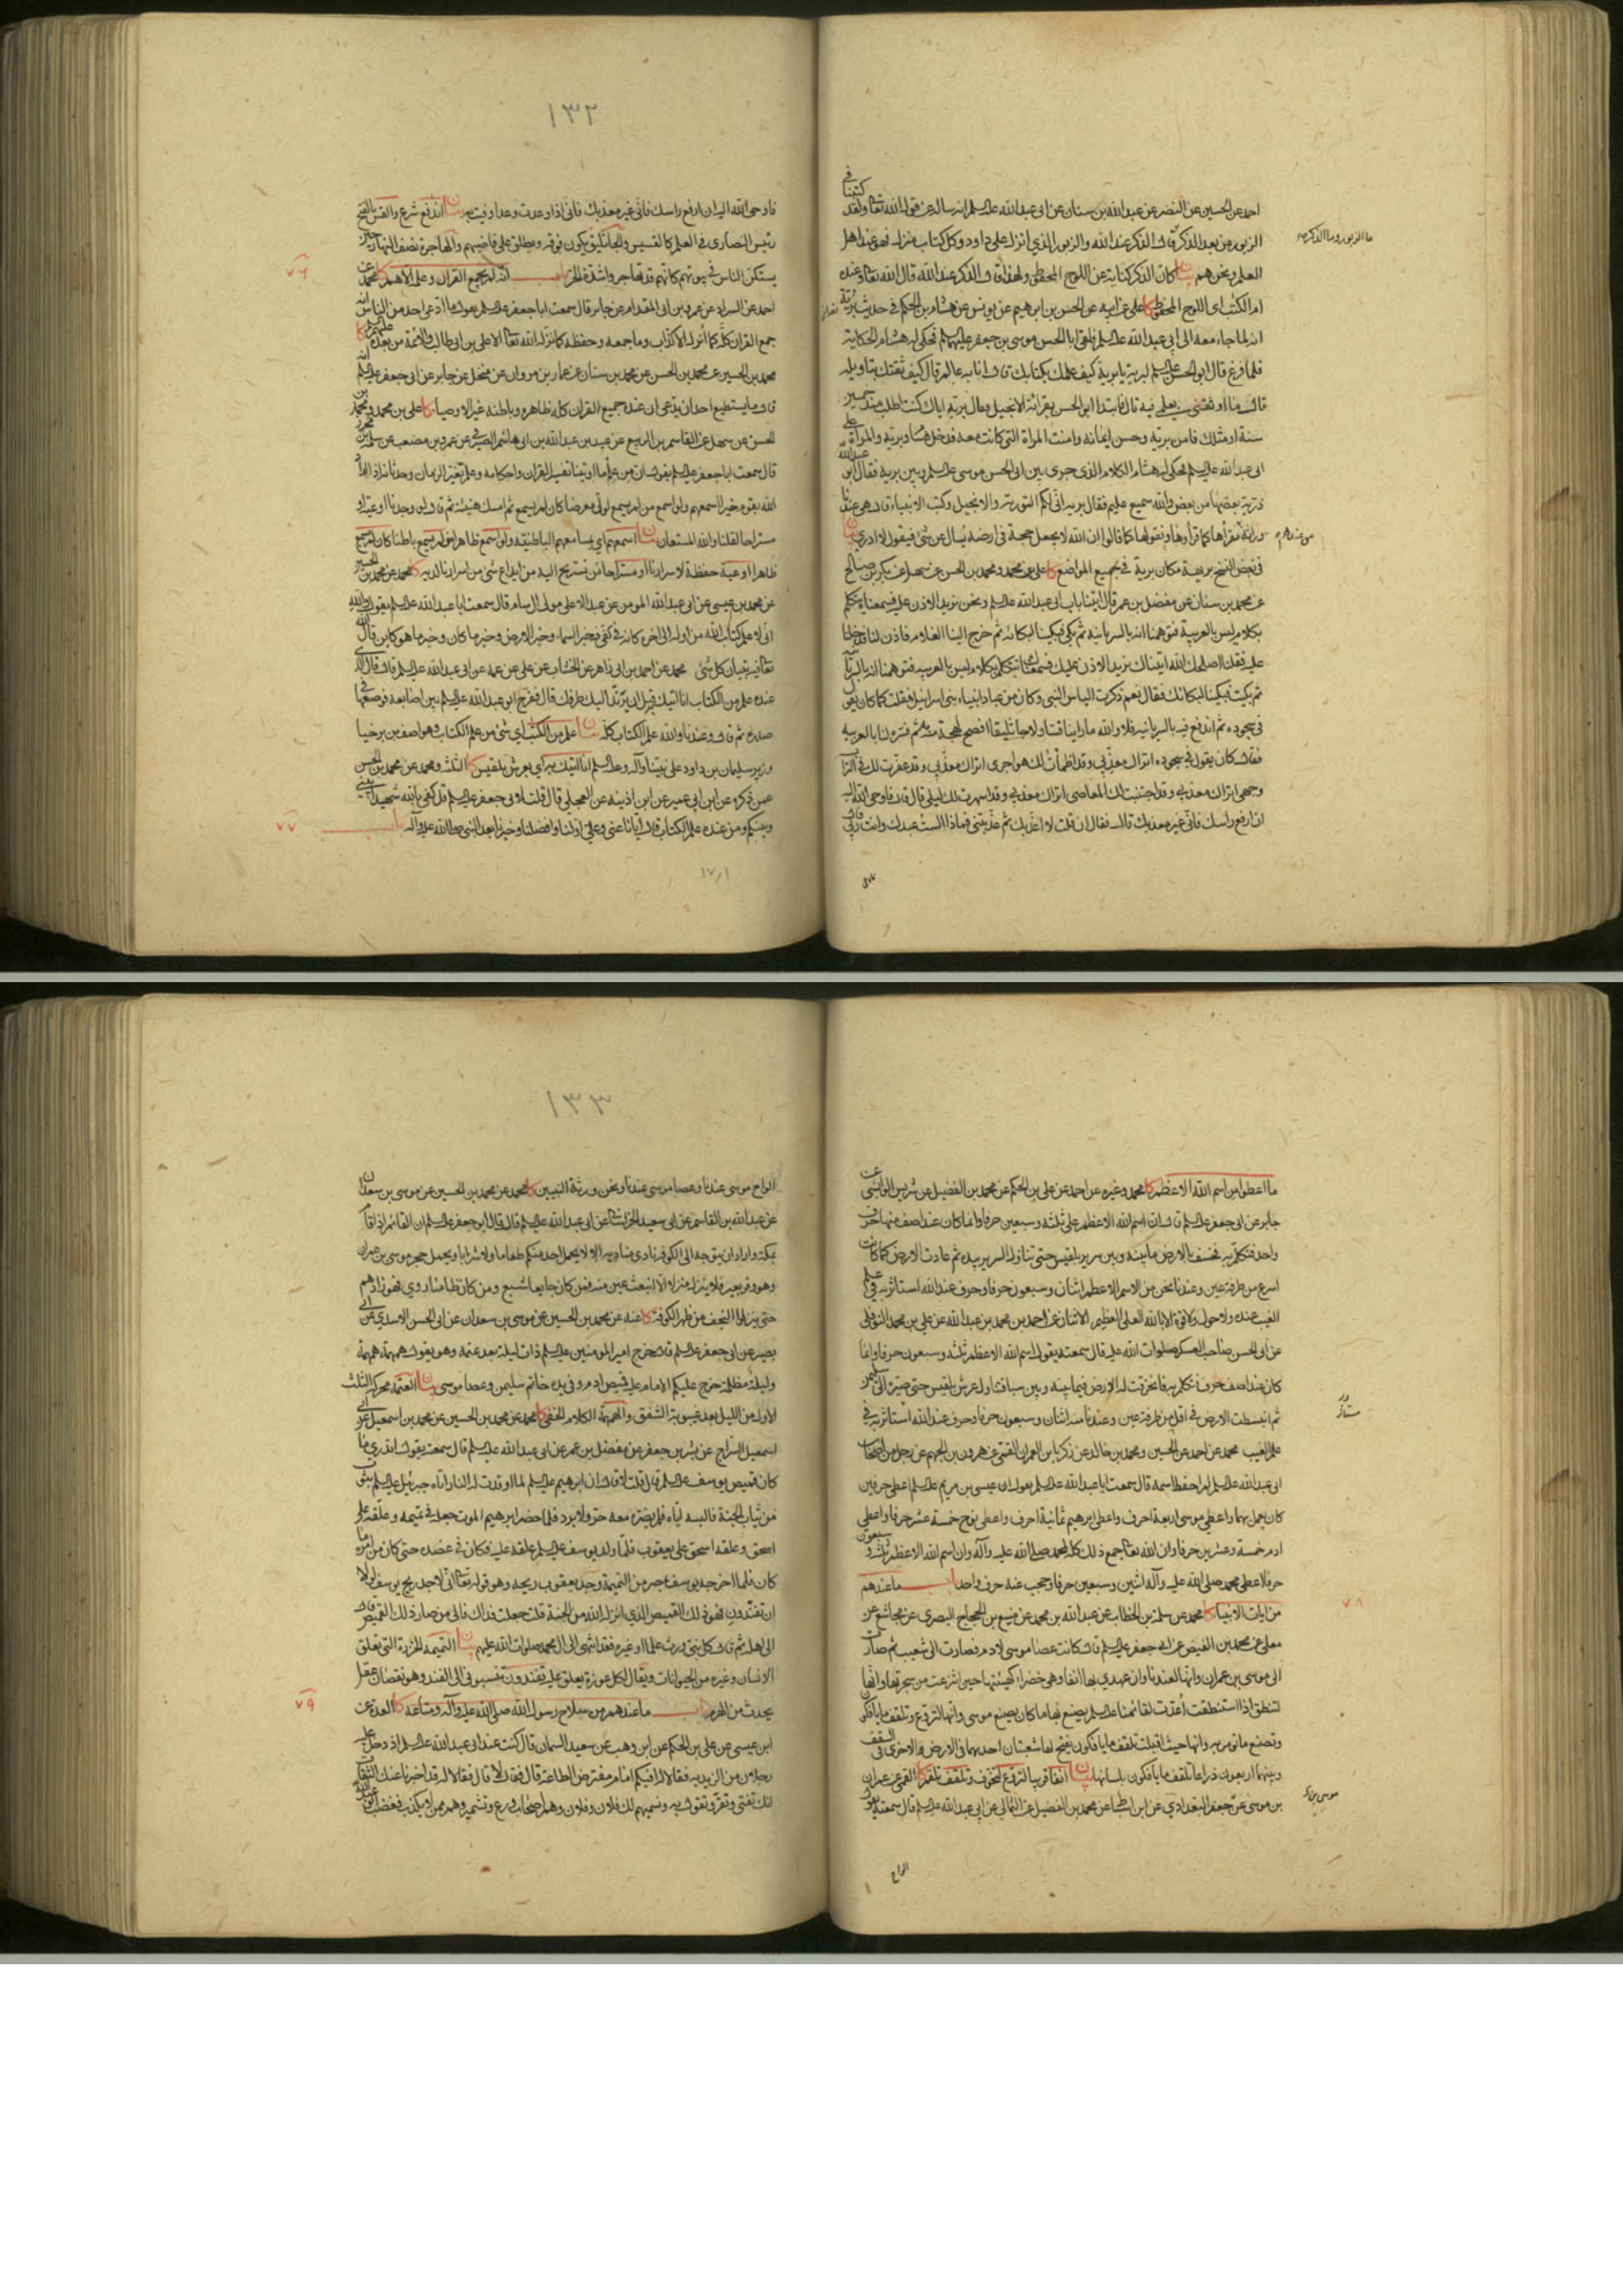 احمد عن الحسين عن النضر عن عبد الله بن سنان عن ابى عبد الله عليه السلم انه ساله عن قول الله تعالى ولقد كتبنا في
الزبور من بعد الذكر قال الذكر عند الله والزبور الذي انزل على داود وكل كتاب منزل فهو عند اهل
ما الزبور وما الذكر
العلم ونحن هم بيان كان الذكر كناية عن اللوح المحفوظ ولهذا قال الذكر عند الله قال الله تعالى وعنده
ام الكتب اى اللوح المحفوظ كا على عن ابيه عن الحسن بن ابرهيم عن يونس عن هشام بن الحكم في حديث بريه
انه لما جاء معه الى ابي عبد الله عليه السلم فلقى ابا الحسن موسى بن جعفر عليهما السلم فحكى له هشام الحكاية
فلما فرغ قال ابو الحسن عليه السلم لبريه يا بريه كيف علمك بكتابك قال انا به عالم قال كيف ثقتك بتاويله
قال ما اوثقنى بعلمي فيه قال فابتدا ابو الحسن يقرا الانجيل فقال بريه اياك كنت اطلب منذ خمسين
سنة او مثلك فامن بريه وحسن ايمانه وامنت المراة التي كانت معه فدخل هشام وبريه والمراة على
ابى عبد الله عليه السلم فحكى له هشام الكلام الذى جرى بين ابى الحسن موسى عليه السلم وبين بريه فقال ابو عبد الله
ذرية بعضها من بعض والله سميع عليم فقال بريه انى لكم التورية والانجيل وكتب الانبياء قال هى عندنا
وراثة نقرأها كما قرأوها ونقولها كما قالوا ان الله لا يجعل حجة فى ارضه يسال عن شئ فيقول لا ادرى بيان
من عندهم
فى بعض النسخ بريهة مكان بريه في جميع المواضع كا على بن محمد ومحمد بن الحسن عن سهل عن بكر بن صالح
عن محمد بن سنان عن مفضل بن عمر قال اتينا باب ابى عبد الله عليه السلم ونحن نريد الاذن عليه فسمعناه يتكلم
بكلام ليس بالعربية فتوهمنا انه بالسريانية ثم بكى فبكينا لبكائه ثم خرج الينا الغلام فاذن لنا فدخلنا
عليه فقلت اصلحك الله اتيناك نريد الاذن عليك فسمعناك تتكلم بكلام ليس بالعربيه فتوهمنا انه بالسريانية
ثم بكيت فبكينا لبكائك فقال نعم ذكرت الياس النبى وكان من عباد انبياء بنى اسرائيل فقلت كما كان يقول
فى سجوده ثم اندفع فيه بالسريانيه فلا والله ما راينا قسا ولا جاثليقا افصح لهجة منه ثم فسره لنا بالعربيه
فقال كان يقول في سجوده اتراك معذبى وقد اظمأت لك هواجرى اتراك معذبى وقد عفرت لك فى التراب
وجهى اتراك معذبى وقد اجتنبت لك المعاصى اتراك معذبى وقد اسهرت لك ليلى قال فاوحى الله اليه
ان ارفع راسك فانى غير معذبك قال فقال ان قلت لا اعذبك ثم عذبتنى فماذا الست عبدك وانت ربى
١٣٢
فاوحى الله اليه ان ارفع راسك فانى غير معذبك فانى اذا وعدت وعدا وفيت به بيان اندفع شرع والقس بالفتح
رئيس النصارى فى العلم كالقسيس والجاثليق يكون فوقه ويطلق على قاضيهم والهاجرة نصف النهار حين
يستكن الناس في بيوتهم كانهم قد تهاجروا شدة الحر باب انه لم يجمع القران وعلمه الا هم كا محمد عن
٧٦
احمد عن السراد عن عمرو بن ابى المقدام عن جابر قال سمعت ابا جعفر عليه السلم يقول ما ادعى احد من الناس انه
جمع القران كله كما انزل الا كذاب وما جمعه وحفظه كما نزله الله تعالى الا على بن ابى طالب والائمة من بعده عليهم السلم كا
محمد بن الحسين عن محمد بن الحسن عن محمد بن سنان عن عمار بن مروان عن منخل عن جابر عن ابى جعفر عليه السلم انه
قال ما يستطيع احد ان يدعى ان عنده جميع القران كله ظاهره وباطنه غير الاوصياء كا على بن محمد ومحمد بن
الحسن عن سهل عن القاسم بن الربيع عن عبيد بن عبد الله بن ابى هاشم الصيرفى عن عمرو بن مصعب عن سلمة بن محرز
قال سمعت ابا جعفر عليه السلم يقول ان من علم ما اوتينا تفسير القران واحكامه وعلم تغير الزمان وحدثانه اذا اراد
الله بقوم خيرا اسمعهم ولو اسمع من لم يسمع لولى معرضا كان لم يسمع ثم امسك هنيئة ثم قال لو وجدنا اوعية او
مستراحا لقلنا والله المستعان بيان اسمعهم اي بمسامعهم الباطنية ولو اسمع ظاهرا من لم يسمع باطنا كان لم يسمع
ظاهرا اوعية حفظة لاسرارنا او مستراحا من نستريح اليه من ايداع شئ من اسرارنا لديه كا محمد عن محمد بن الحسين
عن محمد بن عيسى عن ابى عبد الله المومن عن عبد الاعلى مولى ال سام قال سمعت ابا عبد الله عليه السلم يقول والله
انى لاعلم كتاب الله من اوله الى اخره كانه فى كفى فيه خبر السماء وخبر الارض وخبر ما كان وخبر ما هو كاين قال الله
تعالى فيه تبيان كل شئ محمد عن احمد بن ابى زاهر عن الخشاب عن على عن عمه عن ابى عبد الله عليه السلم قال قال الذى
عنده علم من الكتاب انا اتيك به قبل ان يرتد اليك طرفك قال ففرج ابو عبد الله عليه السلم بين اصابعه فوضعها فى
صدره ثم قال وعندنا والله علم الكتاب كله بيان علم من الكتب اى شئ من علم الكتاب وهو اصف بن برخيا
وزير سليمان بن داود على نبينا وآله وعليه السلم انا اتيك به اي بعرش بلقيس كا الثلثه ومحمد عن محمد بن الحسن
عمن ذكره عن ابن ابى عمير عن ابن اذينه عن العجلى قال قلت لابى جعفر عليه السلم قل كفى بالله شهيدا بينى
وبينكم ومن عنده علم الكتاب قال ايانا عنى وعلى اولنا وافضلنا وخيرنا بعد النبى صلى الله عليه وآله باب
٧٧
ما اعطوا من اسم الله الاعظم كا محمد وغيره عن احمد عن على بن الحكم عن محمد بن الفضيل عن شريس الوابشى عن
جابر عن ابى جعفر عليه السلم قال ان اسم الله الاعظم على ثلثه وسبعين حرفا وانما كان عند اصف منها حرف
واحد فتكلم به فخسف بالارض ما بينه وبين سرير بلقيس حتى تناول السرير بيده ثم عادت الارض كما كانت
اسرع من طرفة عين وعندنا نحن من الاسم الاعظم اثنان وسبعون حرفا وحرف عند الله استاثر به فى علم
الغيب عنده ولا حول ولا قوة الا بالله العلى العظيم الاثنان عن احمد بن محمد بن عبد الله عن على بن محمد النوفلى
عن ابى الحسن صاحب العسكر صلوات الله عليه قال سمعته يقول اسم الله الاعظم ثلثه وسبعون حرفا وانما
كان عند اصف حرف فتكلم به فانخرقت له الارض فيما بينه وبين سبا فتناول عرش بلقيس حتى صيره الى سليمن
ثم انبسطت الارض فى اقل من طرفة عين وعندنا منه اثنان وسبعون حرفا وحرف عند الله استاثر به فى
علم الغيب محمد عن احمد عن الحسين ومحمد بن خالد عن زكريا بن العمران القمى عن هرون بن الجهم عن رجل من اصحاب
ابى عبد الله عليه السلم لم احفظ اسمه قال سمعت ابا عبد الله عليه السلم يقول ان عيسى بن مريم عليه السلم اعطى حرفين
كان يعمل بهما واعطى موسى اربعة احرف واعطى ابرهيم ثمانية احرف واعطى نوح خمسة عشر حرفا واعطى
ادم خمسة وعشرين حرفا وان الله تعالى جمع ذلك كله لمحمد صلى الله عليه وآله وان اسم الله الاعظم ثلثه وسبعون
حرفا اعطى محمد صلى الله عليه وآله اثنين وسبعين حرفا وحجب عنه حرف واحد باب ما عندهم
٧٨
من ايات الانبياء كا محمد عن سلمة بن الخطاب عن عبد الله بن محمد عن منيع بن الحجاج البصرى عن مجاشع عن
معلى عن محمد بن الفيض عن ابى جعفر عليه السلم قال كانت عصا موسى لادم فصارت الى شعيب ثم صارت
الى موسى بن عمران وانها لعندنا وان عهدي بها انفا وهى خضراء كهيئتها حين انتزعت من شجرتها وانها
لتنطق اذا استنطقت اعدت لقائمنا عليه السلم يصنع بها ما كان يصنع موسى وانها لتروع وتلقف ما يافكون
وتصنع ما تومر به وانها حيث اقبلت تلقف ما يافكون يفتح لها شعبتان احديهما فى الارض والاخرى فى السقف
وبينهما اربعون ذراعا تلقف ما يافكون بلسانها بيان انفا قريبا لتروع لتخوف وتلقف تلقم كا القمى عن عمران
بن موسى عن جعفر البغدادي عن ابن اسباط عن محمد بن الفضيل عن الثمالى عن ابى عبد الله عليه السلم قال سمعته يقول
الواح
١٣٣
الواح موسى عندنا وعصا موسى عندنا ونحن ورثة النبيين كا محمد عن محمد بن الحسين عن موسى بن سعدان
عن عبد الله بن القاسم عن ابى سعيد الخراسانى عن ابى عبد الله عليه السلم قال قال ابو جعفر عليه السلم ان القائم اذا قام
بمكة واراد ان يتوجه الى الكوفة نادى مناديه الا لا يحمل احد منكم طعاما ولا شرابا ويحمل حجر موسى بن عمران
وهو وقر بعير فلا ينزل منزلا الا انبعث عين منه فمن كان جايعا شبع ومن كان ظامئا روي فهو زادهم
حتى ينزلوا النجف من ظهر الكوفة كا عنه عن محمد بن الحسين عن موسى بن سعدان عن ابى الحسن الاسدي عن ابى
بصير عن ابى جعفر عليه السلم قال خرج امير المومنين عليه السلم ذات ليلة بعد عتمه وهو يقول همهمة همهمة
وليلة مظلمة خرج عليكم الامام عليه قميص ادم وفى يده خاتم سليمن وعصا موسى بيان العتمة محركة الثلث
الاول من الليل بعد غيبوبة الشفق والهمهمة الكلام الخفى كا محمد عن محمد بن الحسين عن محمد بن اسمعيل عن ابى
اسمعيل السراج عن بشر بن جعفر عن مفضل بن عمر عن ابى عبد الله عليه السلم قال سمعته يقول اتدري ما
كان قميص يوسف عليه السلم قال قلت لا قال ان ابرهيم عليه السلم لما اوقدت له النار اتاه جبرئيل عليه السلم بثوب
من ثياب الجنة فالبسه اياه فلم يضره معه حر ولا برد فلما حضر ابرهيم الموت جعله في تميمه وعلقه على
اسحق وعلقه اسحق على يعقوب فلما ولد يوسف عليه السلم علقه عليه فكان فى عضده حتى كان من امره ما
كان فلما اخرجه يوسف بمصر من التميمة وجد يعقوب ريحه وهو قوله تعالى انى لاجد ريح يوسف لولا
ان تفندون فهو ذلك القميص الذي انزله الله من الجنة قلت جعلت فداك فالى من صار ذلك القميص قال
الى اهله ثم قال كل نبى ورث علما او غيره فقد انتهى الى ال محمد صلوات الله عليهم بيان التميمة الخرزة التى تعلق
الانسان وغيره من الحيوانات ويقال لكل عوذة يعلق عليه تفندون تنسبونى الى الفند وهو نقصان عقل
يحدث من الهرم باب ما عندهم من سلاح رسول الله صلى الله عليه وآله ومتاعه كا العدة عن
٧٩
ابن عيسى عن على بن الحكم عن ابن وهب عن سعيد السمان قال كنت عند ابى عبد الله عليه السلم اذ دخل عليه
رجلان من الزيديه فقالا له افيكم امام مفترض الطاعة قال فقال لا قال فقالا له قد اخبرنا عنك الثقات
انك تفتى وتقر وتقول به ونسميهم لك فلان وفلان وهم اصحاب ورع وتشمير وهم ممن لا يكذب فغضب ابو عبد الله